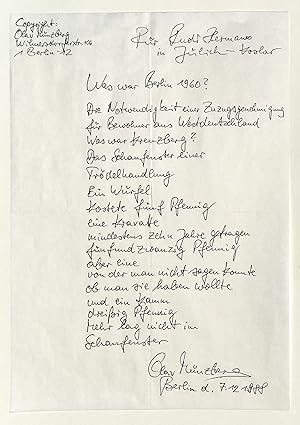 Copyright:
Olav Münzberg
Wilmersdorferstr. 106
1 Berlin 12
Für Rudi Hermans
in Jülich-Koslar
Was war Berlin 1960?
Die Notwendigkeit einer Zuzugsgenehmigung
für Bewohner aus Westdeutschland
Was war Kreuzberg?
Das Schaufenster einer
Trödelhandlung
Ein Würfel
kostete fünf Pfennig
eine Kravatte
mindestens zehn Jahre getragen
fünfundzwanzig Pfennig
aber eine
von der man nicht sagen konnte
ob man sie haben wollte
und ein Kamm
dreißig Pfennig
Mehr lag nicht im
Schaufenster
Olav Münzberg
Berlin d. 7.12.1988